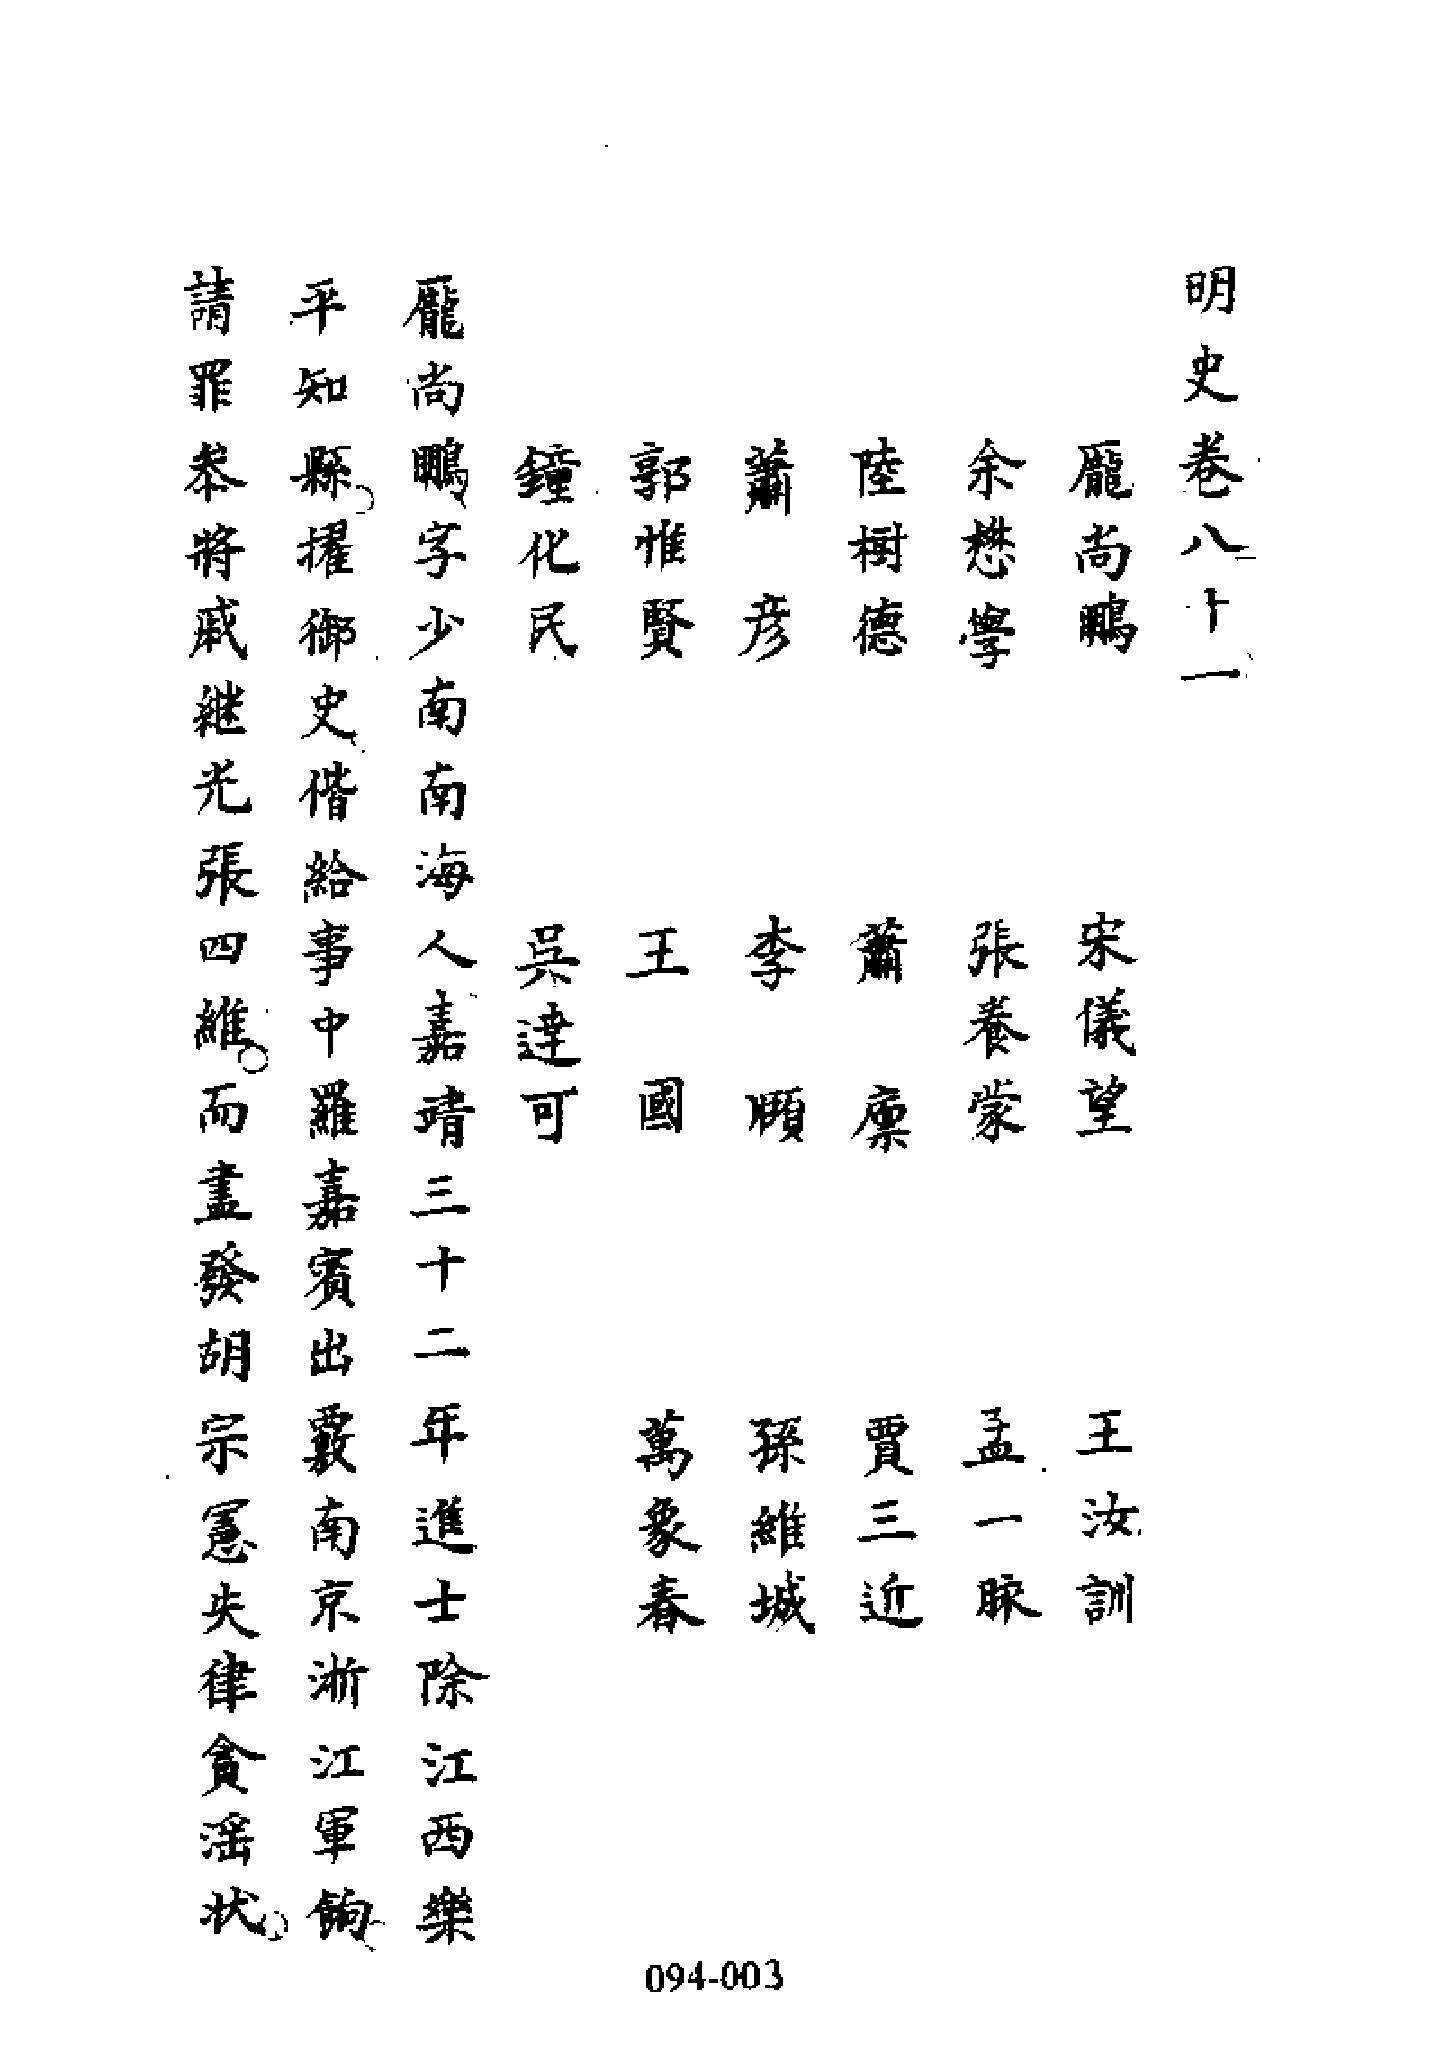 明史卷八十一
龐尚鵬 宋儀望 王汝訓
余懋學 張養蒙 孟一脈
陸樹德 蕭廩 賈三近
蕭彥 李頤 孫維城
郭惟賢 王國 萬象春
鐘化民 吳達可
龐尚鵬字少南南海人嘉靖三十二年進士除江西樂
平知縣擢御史偕給事中羅嘉賓出覈南京浙江軍餉
請罪叅將戚継光張四維而盡發胡宗憲失律貪淫狀
094-003